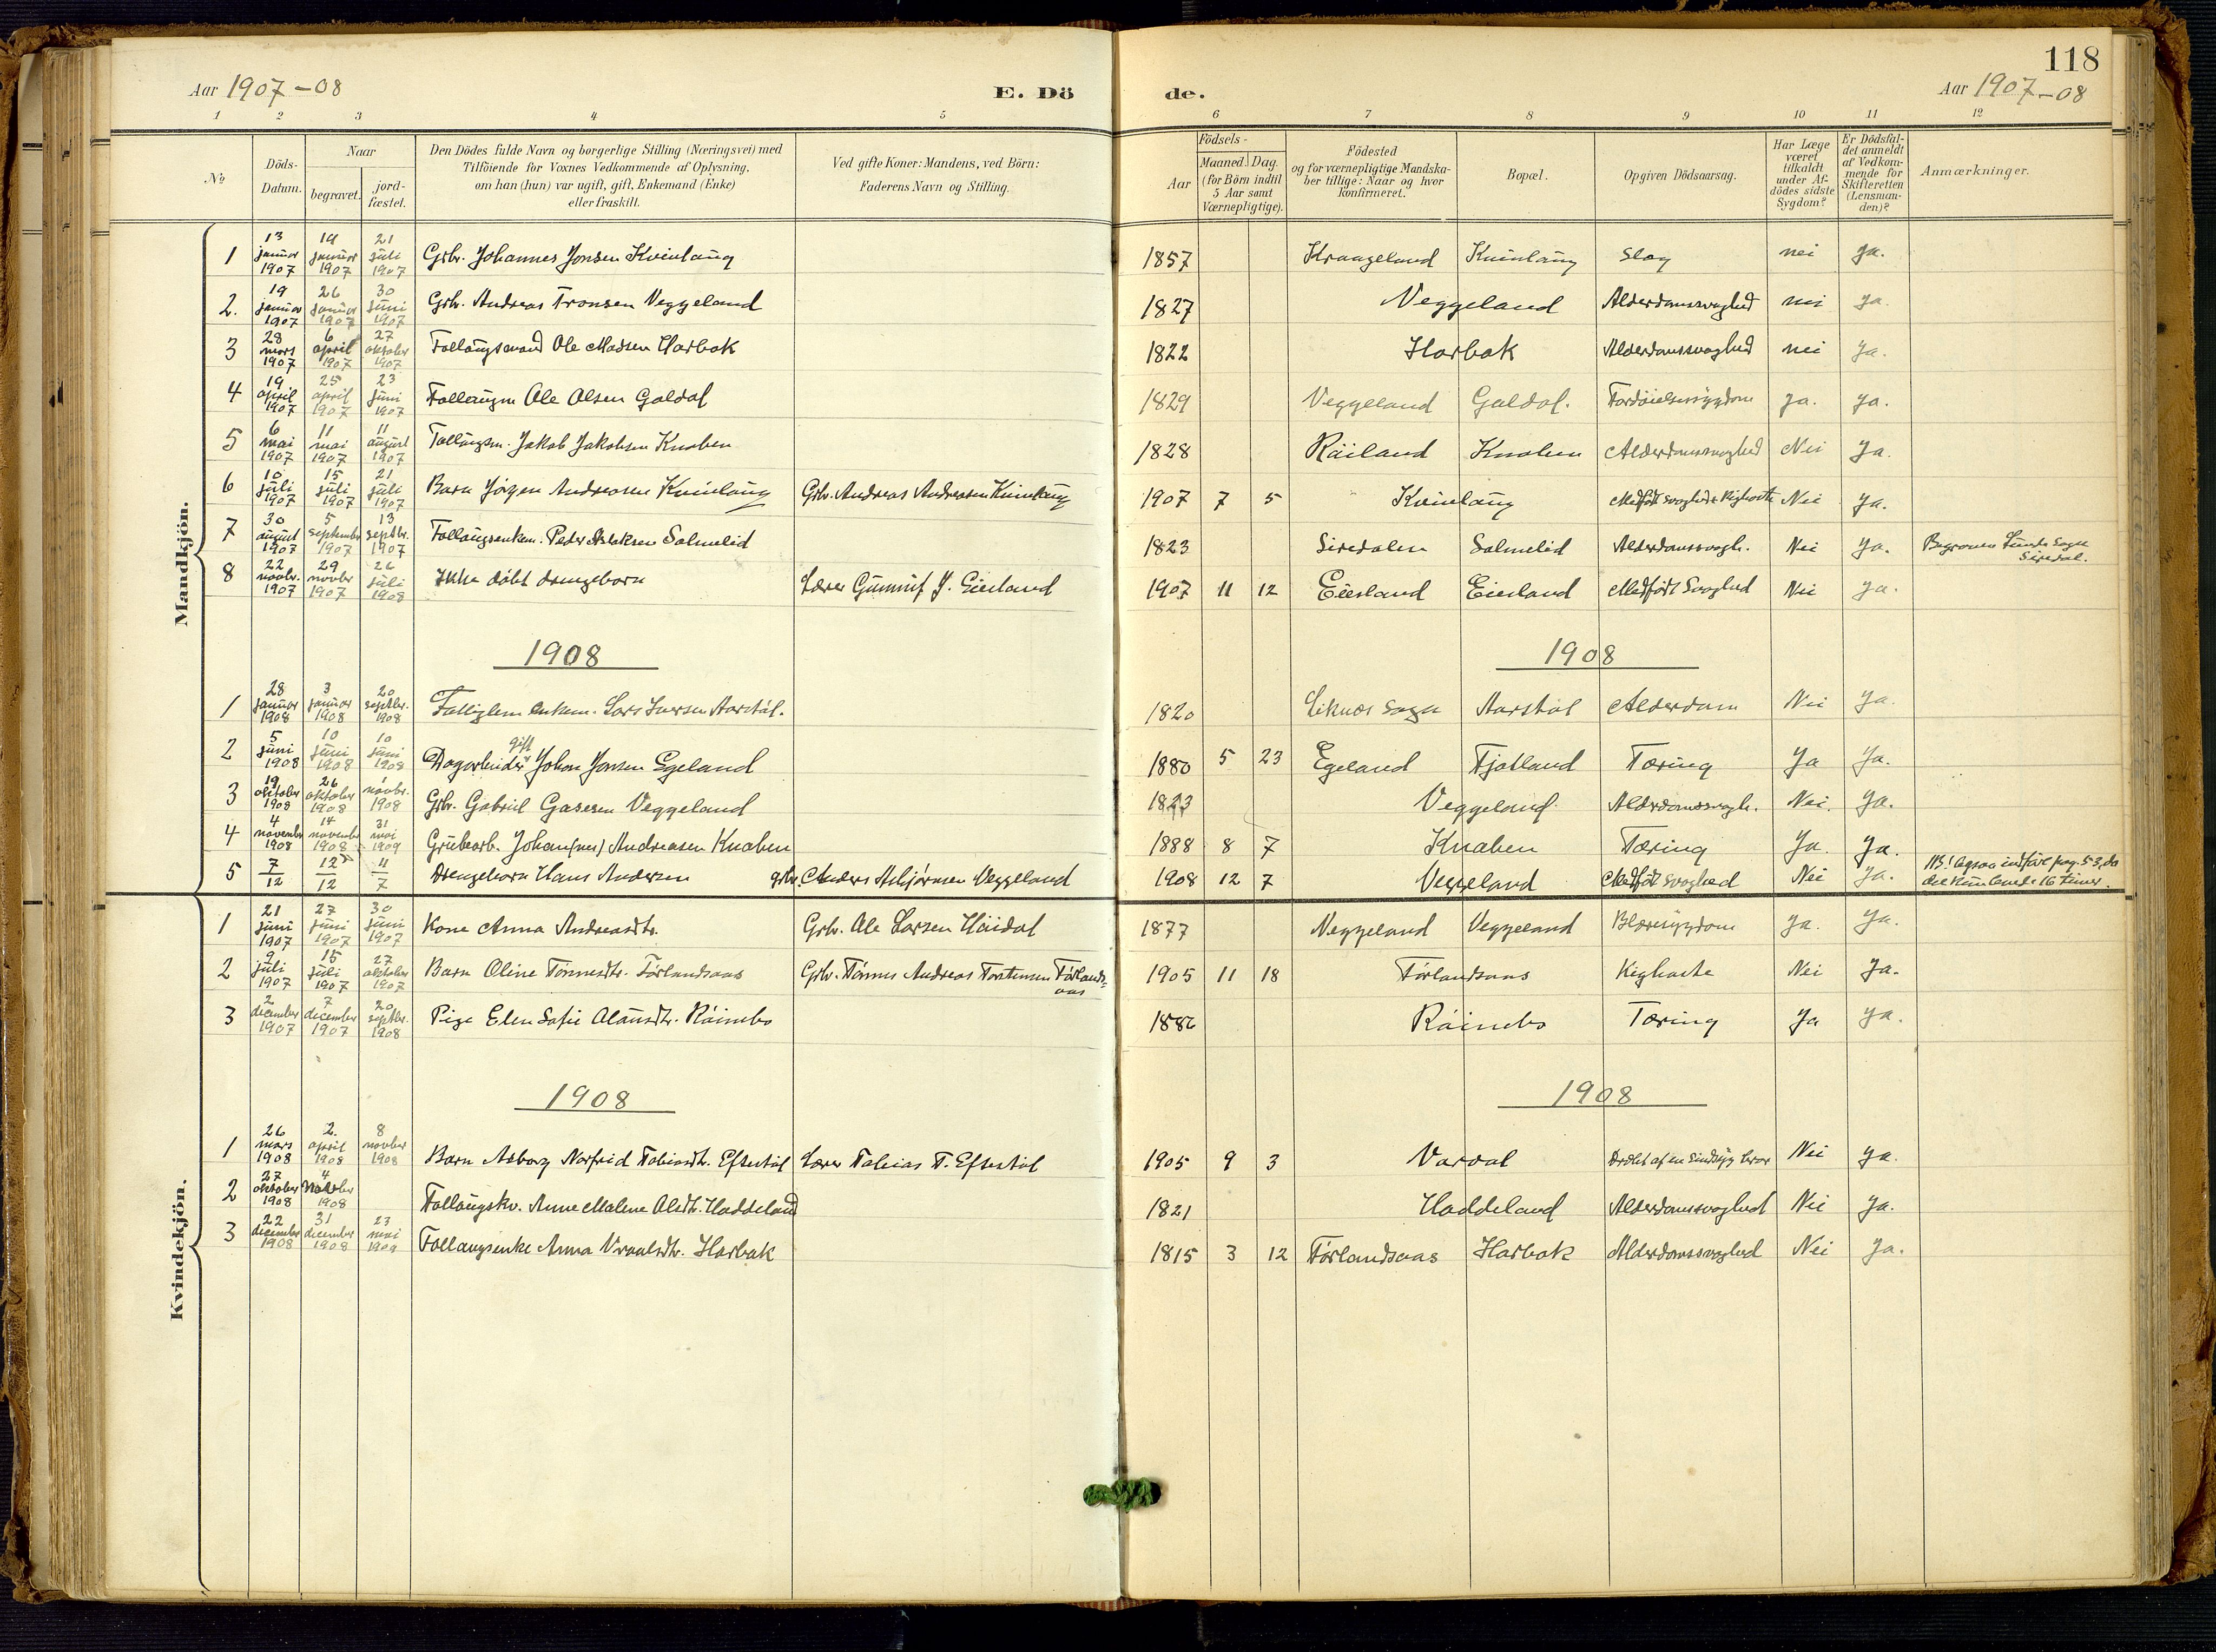 118
Aar 1907-08 E. Dö de. Aar 1907-08
1 2 3 4 5 6 7 8 9 10 11 12
No
Döds-
Datum.
Naar
begravet.
jord-
fæstet.
Den Dödes fulde Navn og borgerlige Stilling (Næringsvei) med
Tilföiende for Voxnes Vedkommende af Oplysning,
om han (hun) var ugift, gift, Enkemand (Enke)
eller fraskilt.
Ved gifte Koner: Mandens, ved Börn:
Faderens Navn og Stilling.
Födsels-
Aar
Maaned. Dag.
(for Börn indtil
5 Aar samt
Værnepligtige).
Födested
og for værnepligtige Mandska-
ber tillige: Naar og hvor
konfirmeret.
Bopæl.
Opgiven Dödsaarsag.
Har Læge
været
tilkaldt
under Af-
dödes sidste
Sygdom?
Er Dödsfal-
det anmeldt
af Vedkom-
mende for
Skifteretten
(Lensman-
den)?
Anmærkninger.
Mandkjön.
1 13 januar 1907 19 januar 1907 21 juli 1907 Grbr. Johannes Jonsen Kvinlaug 1857 Kraageland Kvinlaug Slag nei ja.
2. 19 januar 1907 26 januar 1907 30 juni 1907 Grbr. Andreas Tronsen Veggeland 1827 Veggeland Alderdomssvaghed nei ja.
3 28 mars 1907 6 april 1907 27 oktober 1907 Follaugsmand Ole Madsen Harbak 1822 Harbak Alderdomssvaghed nei ja.
4 19 april 1907 25 april 1907 23 juni 1907 Follaugsm Ole Olsen Galdal 1829 Veggeland Galdal. Fordöielsessygdom ja. ja.
5 6 mai 1907 11 mai 1907 11 august 1907 Follaugsm. Jakob Jakobsen Knaben 1828 Röiland Knaben Alderdomssvaghed Nei ja.
6 10 juli 1907 15 juli 1907 21 juli 1907 Barn Jörgen Andreasen Kvinlaug Grbr. Andreas Andreasen Kvinlaug 1907 7 5 Kvinlaug Medfödt svaghed & Kighoste Nei ja.
7 30 august 1907 5 september 1907 13 septbr. 1907 Follaugsenkem. Peder Aslaksen Salmelid 1823 Siredalen Salmelid Alderdomssvagh. Nei ja. Begraven Lunde Sogn
Siredal.
8 22 novbr. 1907 29 novbr 1907 26 juli 1908 Ikke döbt drengebarn Lærer Gunnuf J. Eiesland 1907 11 12 Eiesland Eiesland Medfödt Svaghed Nei ja.
1908 1908
1 28 januar 1908 3 januar 1908 20 septbr. 1908 Fattiglem enkem. Lars Iversen Aarstöl. 1820 Eiknes Sogn Aarstöl Alderdom Nei ja.
gift
2 5 juni 1908 10 juni 1908 10 juni 1908 Dagarbeider Johan Jonsen Egeland 1880 5 23 Egeland Fjotland Tæring Ja Ja.
3 19 oktober 1908 26 oktober 1908 1 novbr. 1908 Grbr. Gabriel Gasesen Veggeland 1823 Veggeland Alderdomssvagh. Nei. ja.
4 4 novembr 1908 14 november 1908 31 mai 1909 Grubearb. Johan(nes) Andreasen Knaben 1888 8 7 Knaben Tæring Ja. ja.
5 7/12 12/12 11/7 Drengebarn Hans Andersen grbr. Anders Asbjörnsen Veggeland 1908 12 7 Veggeland Medfödt svaghed Nei ja. NB! Ogsaa indfört pag. 53, da
det kun levede 16 timer.
Kvindekjön.
1 21 juni 1907 27 juni 1907 30 juni 1907 Kone Anna Andreasdtr. Grbr. Ole Larsen Höidal 1877 Veggeland Veggeland Blæresygdom ja. ja.
2 9 juli 1907 15 juli 1907 27 oktober 1907 Barn Oline Tönnesdtr. Förlandsaas Grbr. Tönnes Andreas Torstensen Förlands-
aas 1905 11 18 Förlandsaas Kighoste Nei ja.
3 2 december 1907 7 december 1907 20 septbr. 1908 Pige Elen Sofie Olausdtr. Röinebo 1886 Röinebo Tæring Ja ja.
1908 1908
1 26 mars 1908 2. april 1908 8 novber 1908 Barn Asborg Norfrid Tobiasdtr. Eftestöl Lærer Tobias T. Eftestöl 1905 9 3 Vardal Dræbt af en Sindssyg Nei ja.
2 27 oktober 1908 4 novber 1908 Follaugskv. Anne Malene Olsdtr. Haddeland 1821 Haddeland Alderdomssvaghed Nei ja.
3 22 december 1908 31 december 1908 23 mai 1909 Follaugsenke Anna Vraalsdtr. Harbak 1815 3 12 Förlandsaas Harbak Alderdomssvaghed Nei ja.